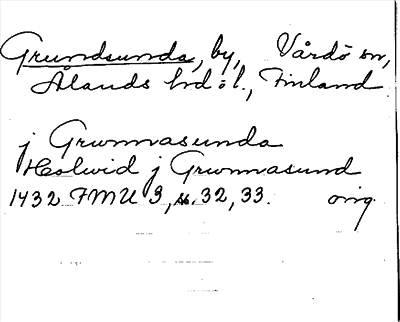 Grundsunda, by, Vårdö sn,
Ålands hd o l., Finland
j Grwnnasunda
Holwid j Grwnnasund
1432 FMU 3, s. 32, 33. orig.